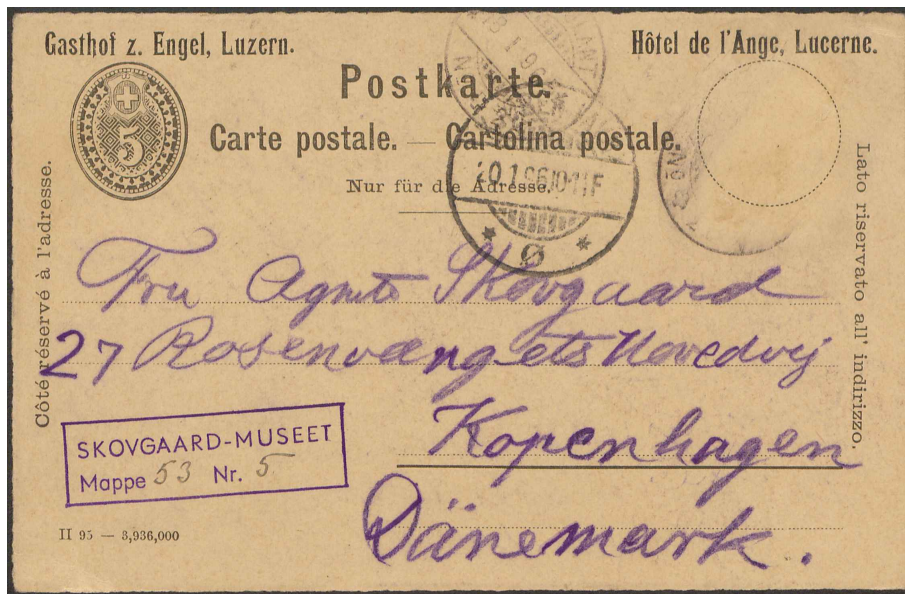 Gasthof z. Engel, Luzern.
Hôtel de l'Ange, Lucerne.
Postkarte.
Carte postale. — Cartolina postale.
Nur für die Adresse.
Côté réservé à l'adresse.
Lato riservato all' indirizzo.
5
20.1.96 10-11F
Ø
Fru Agnete Skovgaard
27 Rosenvængets Hovedvej
Kopenhagen
Dänemark.
SKOVGAARD-MUSEET
Mappe 53 Nr. 5
II 95 — 3,936,000